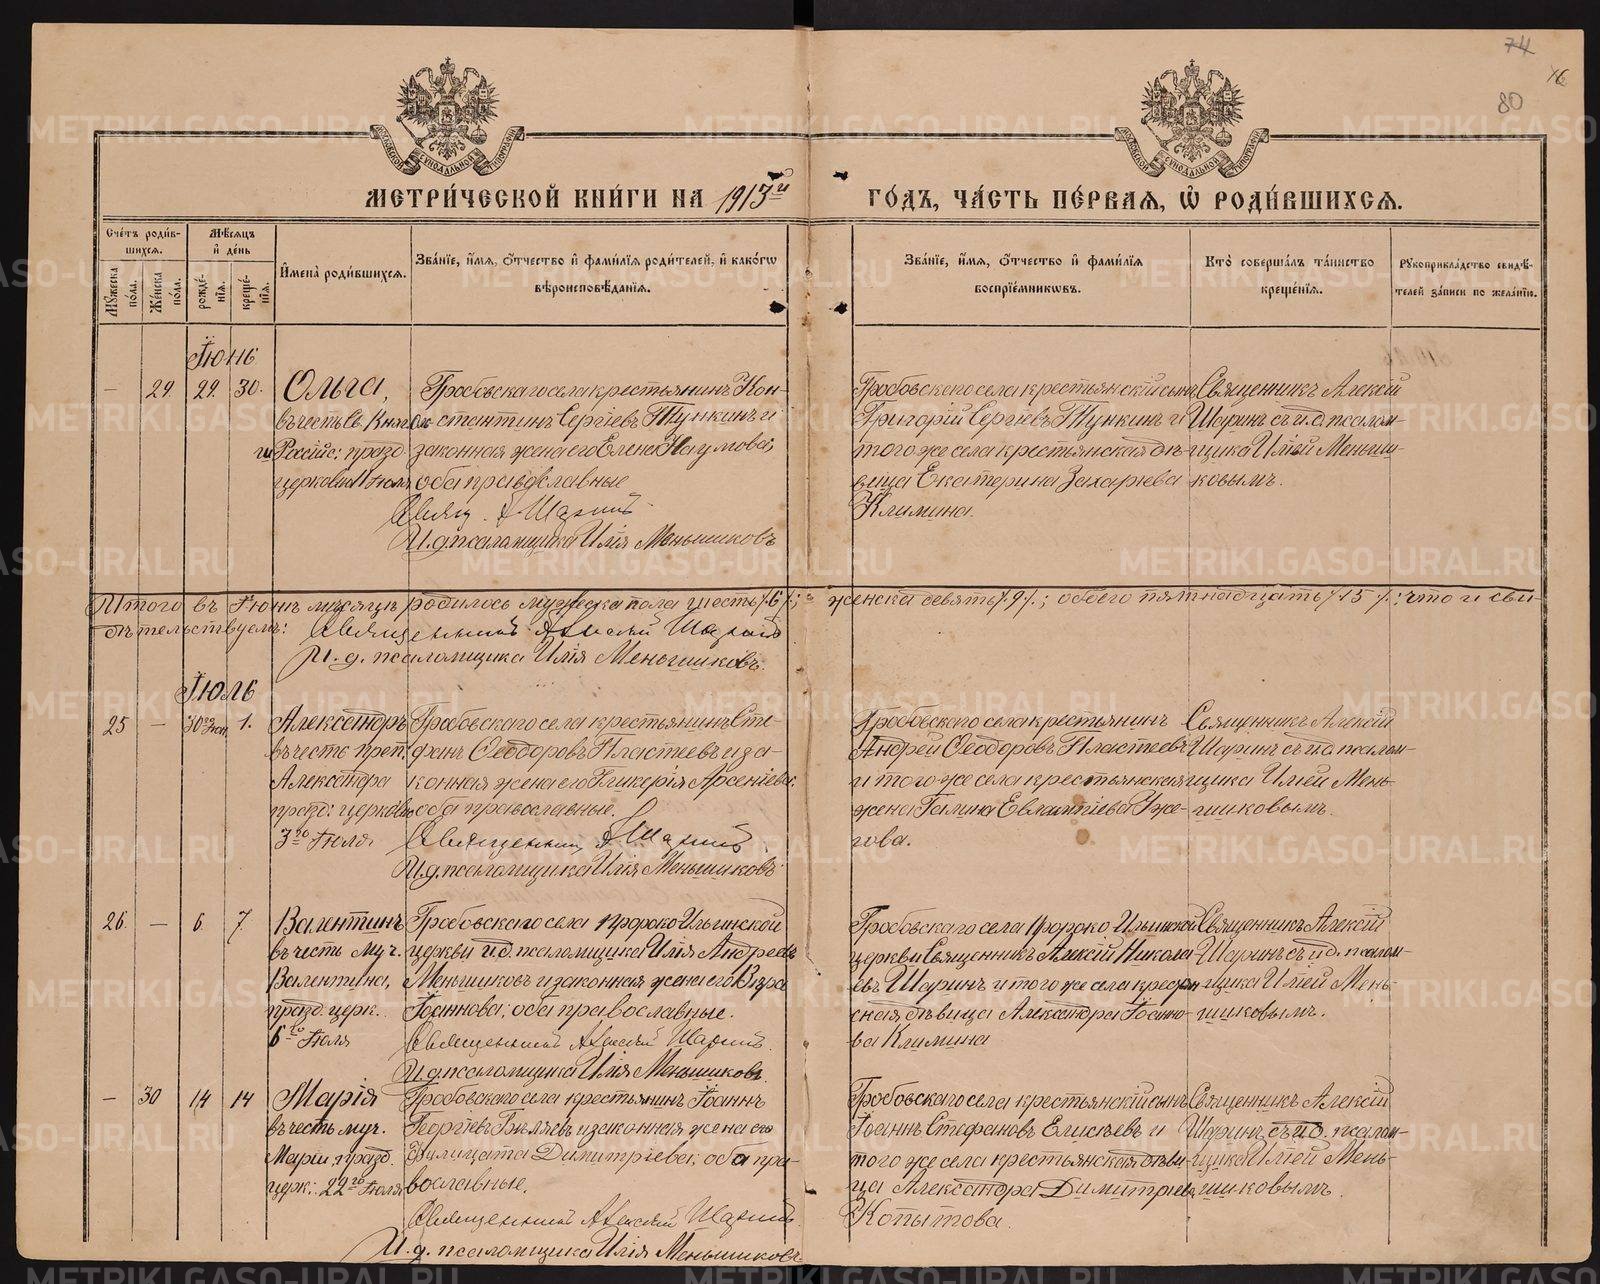 74
76
80
МОСКОВСКОЙ СѴНОДАЛЬНОЙ ТИПОГРАФІИ
МОСКОВСКОЙ СѴНОДАЛЬНОЙ ТИПОГРАФІИ
МЕТРИ́ЧЕСКОЙ КНИ́ГИ НА 1913й ГО́ДЪ, ЧА́СТЬ ПЕ́РВАѦ, Ѡ҆ РОДИ́ВШИХСѦ.
Сче́тъ роди́вшихсѧ.
Мꙋ́жеска по́ла.
Же́нска по́ла.
Мѣ́сѧцъ и҆ де́нь
рожде́нїѧ.
креще́нїѧ.
И҆мена̀ роди́вшихсѧ.
Зва́нїе, и҆́мѧ, ѻ҆́тчество и҆ фами́лїѧ роди́телей, и҆ како́гѡ
вѣроисповѣ́данїѧ.
Зва́нїе, и҆́мѧ, ѻ҆́тчество и҆ фами́лїѧ
воспрїе́мникѡвъ.
Кто̀ соверша́лъ та́инство
креще́нїѧ.
Рꙋкоприкла́дство свидѣ́телей за́писи по жела́нїю.
Іюнь
— 29. 29. 30.
Ольга,
въ честь Св. Княгини
Россійс: празд
церковію 11 Іюля
Гробовскаго села крестьянинъ Кон-
стантинъ Сергіевъ Тункинъ и
законная жена его Елена Наумова,
оба православные
Свящ. А Шаринъ
И. д. псаломщика Илія Меньшиковъ
Гробовскаго села крестьянскій сынъ
Григорій Сергіевъ Тункинъ и
того же села крестьянская дѣ-
вица Екатерина Захарьева
Климина.
Священникъ Алексій
Шаринъ съ и. д. псалом-
щика Иліей Меньши-
ковымъ.
Итого въ Іюнѣ мѣсяцѣ родилось мужеска пола шесть /.6/.; женска девять /.9/.; обоего пятнадцать /.15/.; что и сви-
дѣтельствуемъ: Священникъ Алексій Шаринъ
И. д. псаломщика Илія Меньшиковъ.
Іюль
25 — 30го Іюн. 1.
Александръ
въ честь преп.
Александра
празд: церковію
3го Іюля.
Гробовскаго села крестьянинъ Сте-
фанъ Ѳеодоровъ Пластеевъ и за-
конная жена его Гликерія Арсеніева;
оба православные.
Священникъ А Шаринъ
И. д. псаломщика Илія Меньшиковъ
Гробовскаго села крестьянинъ
Андрей Ѳеодоровъ Пластеевъ
и того же села крестьянская
жена Галина Евлантіева Уже-
гова.
Священникъ Алексій
Шаринъ съ и.д. псалом-
щика Иліей Мень-
шиковымъ.
26. — 6. 7.
Валентинъ
въ честь муч.
Валентина,
празд. церк.
6го Іюля
Гробовскаго села Пророко Ильинской
церкви и.д. псаломщика Илія Андреевъ
Меньшиковъ и законная жена его Вѣра
Іоаннова; оба православные.
Священникъ Алексій Шаринъ.
И. д. псаломщика Илія Меньшиковъ.
Гробовскаго села Пророко Ильинской
церкви Священникъ Алексій Никола-
евъ Шаринъ и того же села крестьян-
ская дѣвица Александра Іоанно-
ва Климина
Священникъ Алексій
Шаринъ съ и.д. псалом-
щика Иліей Мень-
шиковымъ.
— 30 14 14
Марія
въ честь муч.
Маріи, празд.
церк: 22го Іюля
Гробовскаго села крестьянинъ Іоаннъ
Георгіевъ Бѣляевъ и законная жена его
Филицата Димитріева; оба пра-
вославные.
Священникъ Алексій Шаринъ.
И. д. псаломщика Илія Меньшиковъ
Гробовскаго села крестьянскій сынъ
Іоаннъ Стефановъ Елисѣевъ и
того же села крестьянская дѣви-
ца Александра Димитріева
Копытова.
Священникъ Алексій
Шаринъ съ и.д. псалом-
щика Иліей Мень-
шиковымъ.
METRIKI.GASO-URAL.RU